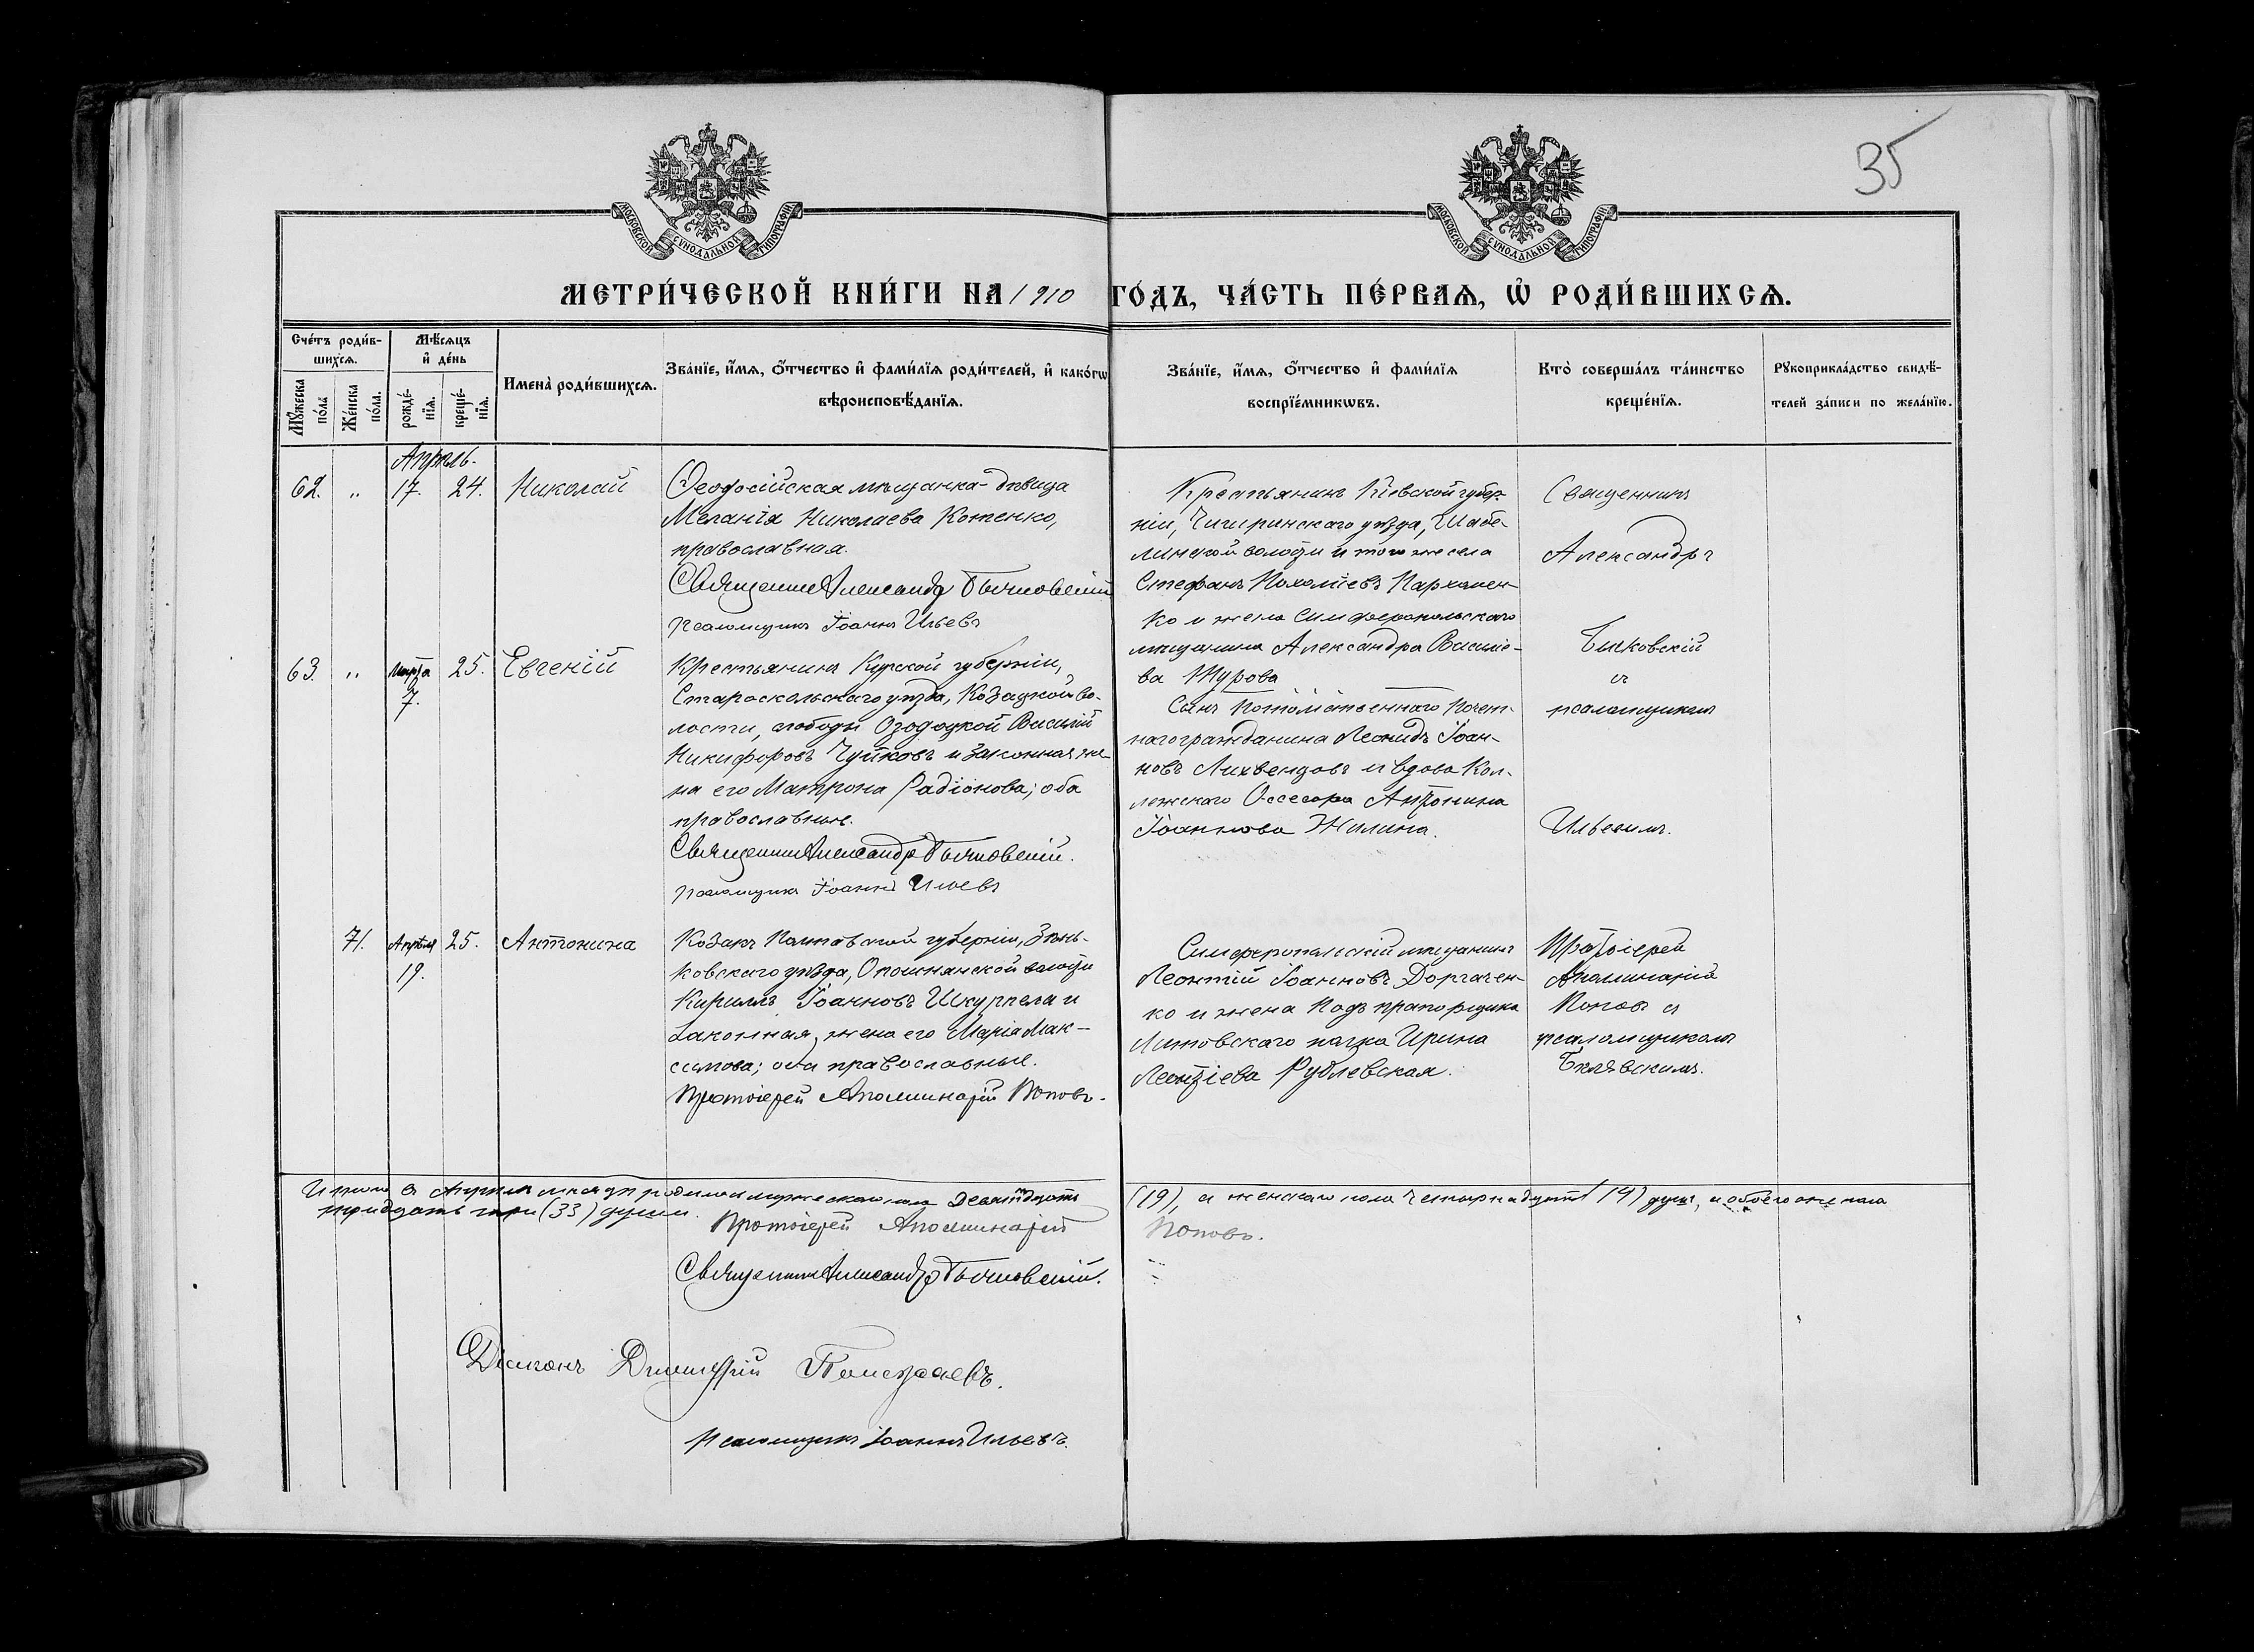 35
МОСКОВСКОЙ СѴНОДАЛЬНОЙ ТИПОГРАФІИ
МОСКОВСКОЙ СѴНОДАЛЬНОЙ ТИПОГРАФІИ
МЕТРИ́ЧЕСКОЙ КНИ́ГИ НА 1910 ГО́ДЪ, ЧА́СТЬ ПЕ́РВАѦ, Ѡ҆ РОДИ́ВШИХСѦ.
Сче́тъ роди́в-
шихсѧ.
Мꙋ́жеска по́ла̀
Же́нска по́ла.
Мѣ́сѧцъ
и҆ де́нь
рожде́-
нїѧ.
креще́-
нїѧ.
Имена̀ роди́вшихсѧ.
Зва́нїе, и҆́мѧ, ѻ҆́тчество и҆ фами́лїѧ роди́телей, и҆ како́гѡ
вѣроисповѣ́данїѧ.
Зва́нїе, и҆́мѧ, ѻ҆́тчество и҆ фами́лїѧ
воспрїе́мникѡвъ.
Кто̀ соверша́лъ та́инство
креще́нїѧ.
Рꙋкоприкла́дство свидѣ́-
телей за́писи по жела́нїю.
Апрѣль.
62. " 17. 24. Николай
Ѳеодосійская мѣщанка-дѣвица
Меланія Николаева Котенко,
православная.
Священникъ Александръ Бычковскій
Псаломщикъ Іоаннъ Ильевъ
Крестьянинъ Кіевской губер-
ніи, Чигиринскаго уѣзда, Шабе-
линской волости и того же села
Стефанъ Пахоміевъ Пархомен-
ко и жена Симферопольскаго
мѣщанина Александра Василіе-
ва Шурова
Священникъ
Александръ
Бычковскій
съ
псаломщикомъ
Ильевымъ.
63. " Марта 7. 25. Евгеній
Крестьянинъ Курской губерніи,
Старооскольскаго уѣзда, Козацкой во-
лости, слободы Василій
Никифоровъ Чуйковъ и законная же-
на его Матрона Радіонова; оба
православные.
Священникъ Александръ Бычковскій.
Псаломщикъ Іоаннъ Ильевъ
Сынъ Потомственнаго Почет-
наго гражданина Леонидъ Іоан-
новъ Лихвенцовъ и вдова Кол-
лежскаго Ассесора Антонина
Іоаннова Жилина.
71. Апрѣля 19. 25. Антонина
Козакъ Полтавской губерніи, Зѣнь-
ковскаго уѣзда, Опошнянской волости
Кириллъ Іоанновъ Шкурпела и
законная жена его Марія Мак-
симова; оба православные.
Протоіерей Аполлинарій Поповъ.
Симферопольскій мѣщанинъ
Леонтій Іоанновъ Доргачен-
ко и жена Подпрапорщика
Литовскаго полка Ирина
Леонтіева Рублевская.
Протоіерей
Аполлинарій
Поповъ съ
псаломщикомъ
Бѣлявскимъ.
Итого въ Апрѣлѣ мѣсяцѣ родилось мужескаго пола девятнадцать (19), а женскаго пола четырнадцать (14) душъ, и обоего же пола
тридцать три (33) души.
Протоіерей Аполлинарій Поповъ.
Священникъ Александръ Бычковскій.
Діаконъ Димитрій
Псаломщикъ Іоаннъ Ильевъ.